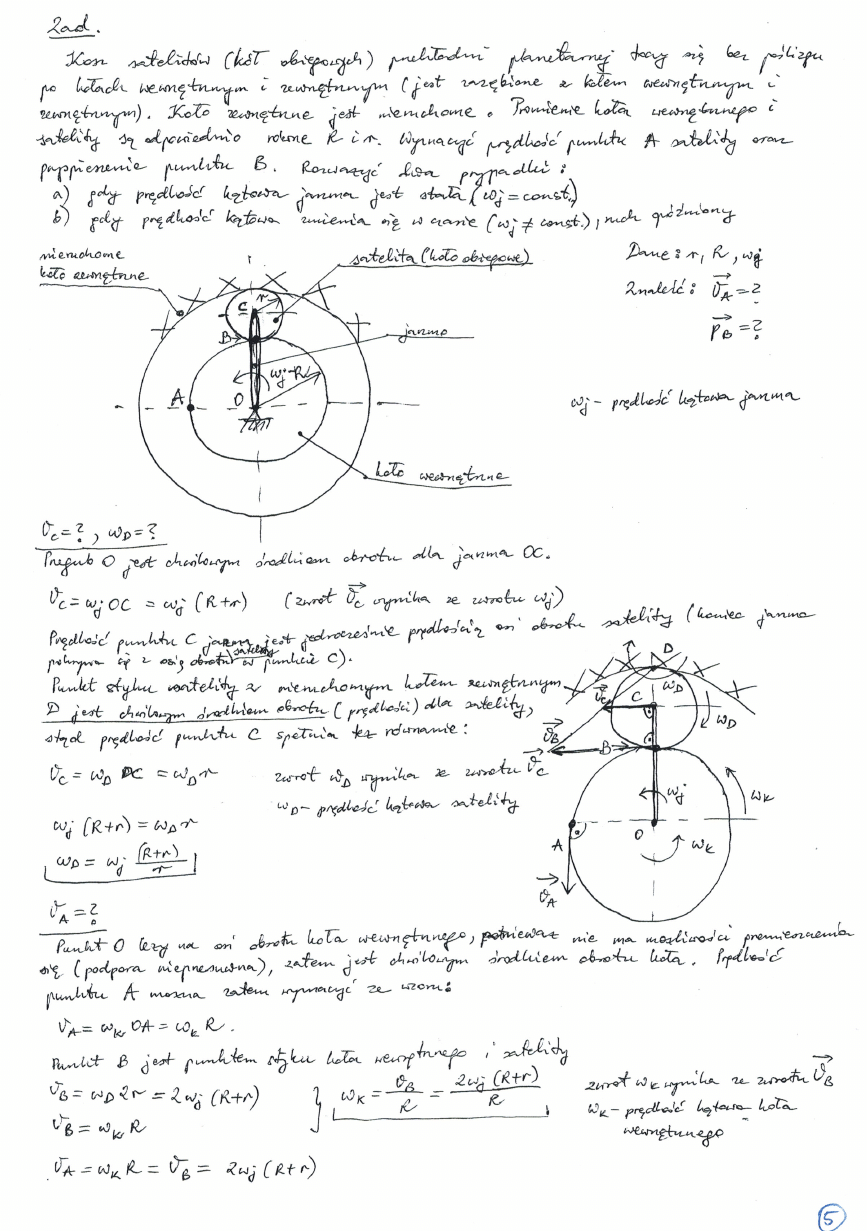 Zad.
Kosz satelitów (kół obiegowych) przekładni planetarnej toczy się bez poślizgu
po kołach wewnętrznym i zewnętrznym (jest zazębione z kołem wewnętrznym i
zewnętrznym). Koło zewnętrzne jest nieruchome. Promienie koła wewnętrznego i
satelity są odpowiednio równe R i r. Wyznaczyć prędkość punktu A satelity oraz
przyspieszenie punktu B. Rozważyć dwa przypadki:
a) gdy prędkość kątowa jarzma jest stała (ωj = const.)
b) gdy prędkość kątowa zmienia się w czasie (ωj ≠ const.), ruch opóźniony
nieruchome
koło zewnętrzne
satelita (koło obiegowe)
Dane: r, R, ωj
Znaleźć: VA = ?
pB = ?
C
r
B
jarzmo
ωj
R
A
O
ωj - prędkość kątowa jarzma
koło wewnętrzne
Vc = ?, ωD = ?
Przegub O jest chwilowym środkiem obrotu dla jarzma OC.
Vc = ωj OC = ωj (R+r) (zwrot Vc wynika ze zwrotu ωj)
Prędkość punktu C jarzma jest jednocześnie prędkością osi obrotu satelity (koniec jarzma
pokrywa się z osią obrotu satelity w punkcie C).
Punkt styku satelity z nieruchomym kołem zewnętrznym
D jest chwilowym środkiem obrotu (prędkości) dla satelity,
stąd prędkość punktu C spełnia też równanie:
Vc = ωD DC = ωD r zwrot ωD wynika ze zwrotu Vc
ωD - prędkość kątowa satelity
ωj (R+r) = ωD r
ωD = ωj (R+r)/r
D
Vc
C
ωD
ωD
VB
B
ωj
ωK
A
O
ωK
VA
VA = ?
Punkt O leży na osi obrotu koła wewnętrznego, ponieważ nie ma możliwości przemieszczenia
się (podpora nieprzesuwna), zatem jest chwilowym środkiem obrotu koła. Prędkość
punktu A można zatem wyznaczyć ze wzoru:
VA = ωK OA = ωK R.
Punkt B jest punktem styku koła wewnętrznego i satelity
VB = ωD 2r = 2ωj (R+r)
VB = ωK R
} ωK = VB/R = 2ωj (R+r)/R
zwrot ωK wynika ze zwrotu VB
ωK - prędkość kątowa koła
wewnętrznego
VA = ωK R = VB = 2ωj (R+r)
5